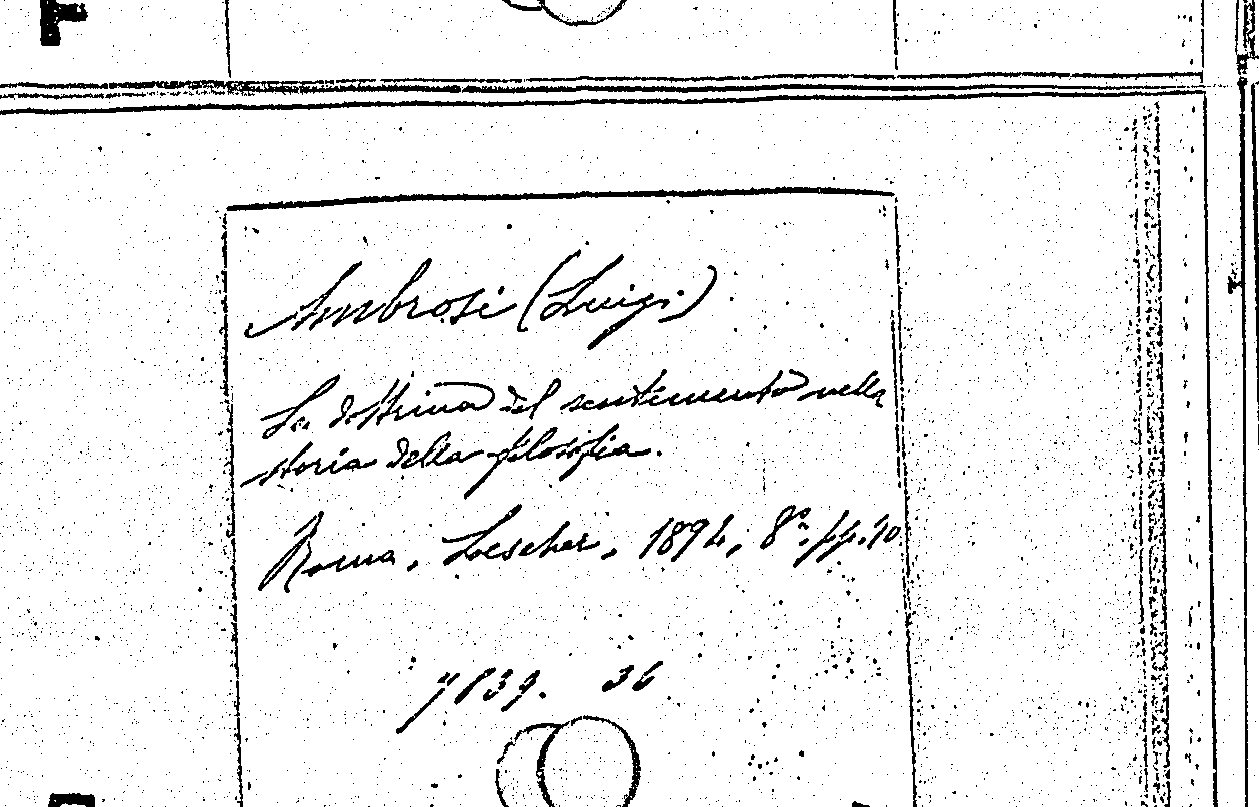 Ambrosi (Luigi)
La dottrina del sentimento nella
storia della filosofia.
Roma, Loescher, 1894, 8º. pp. 70
7839. 36